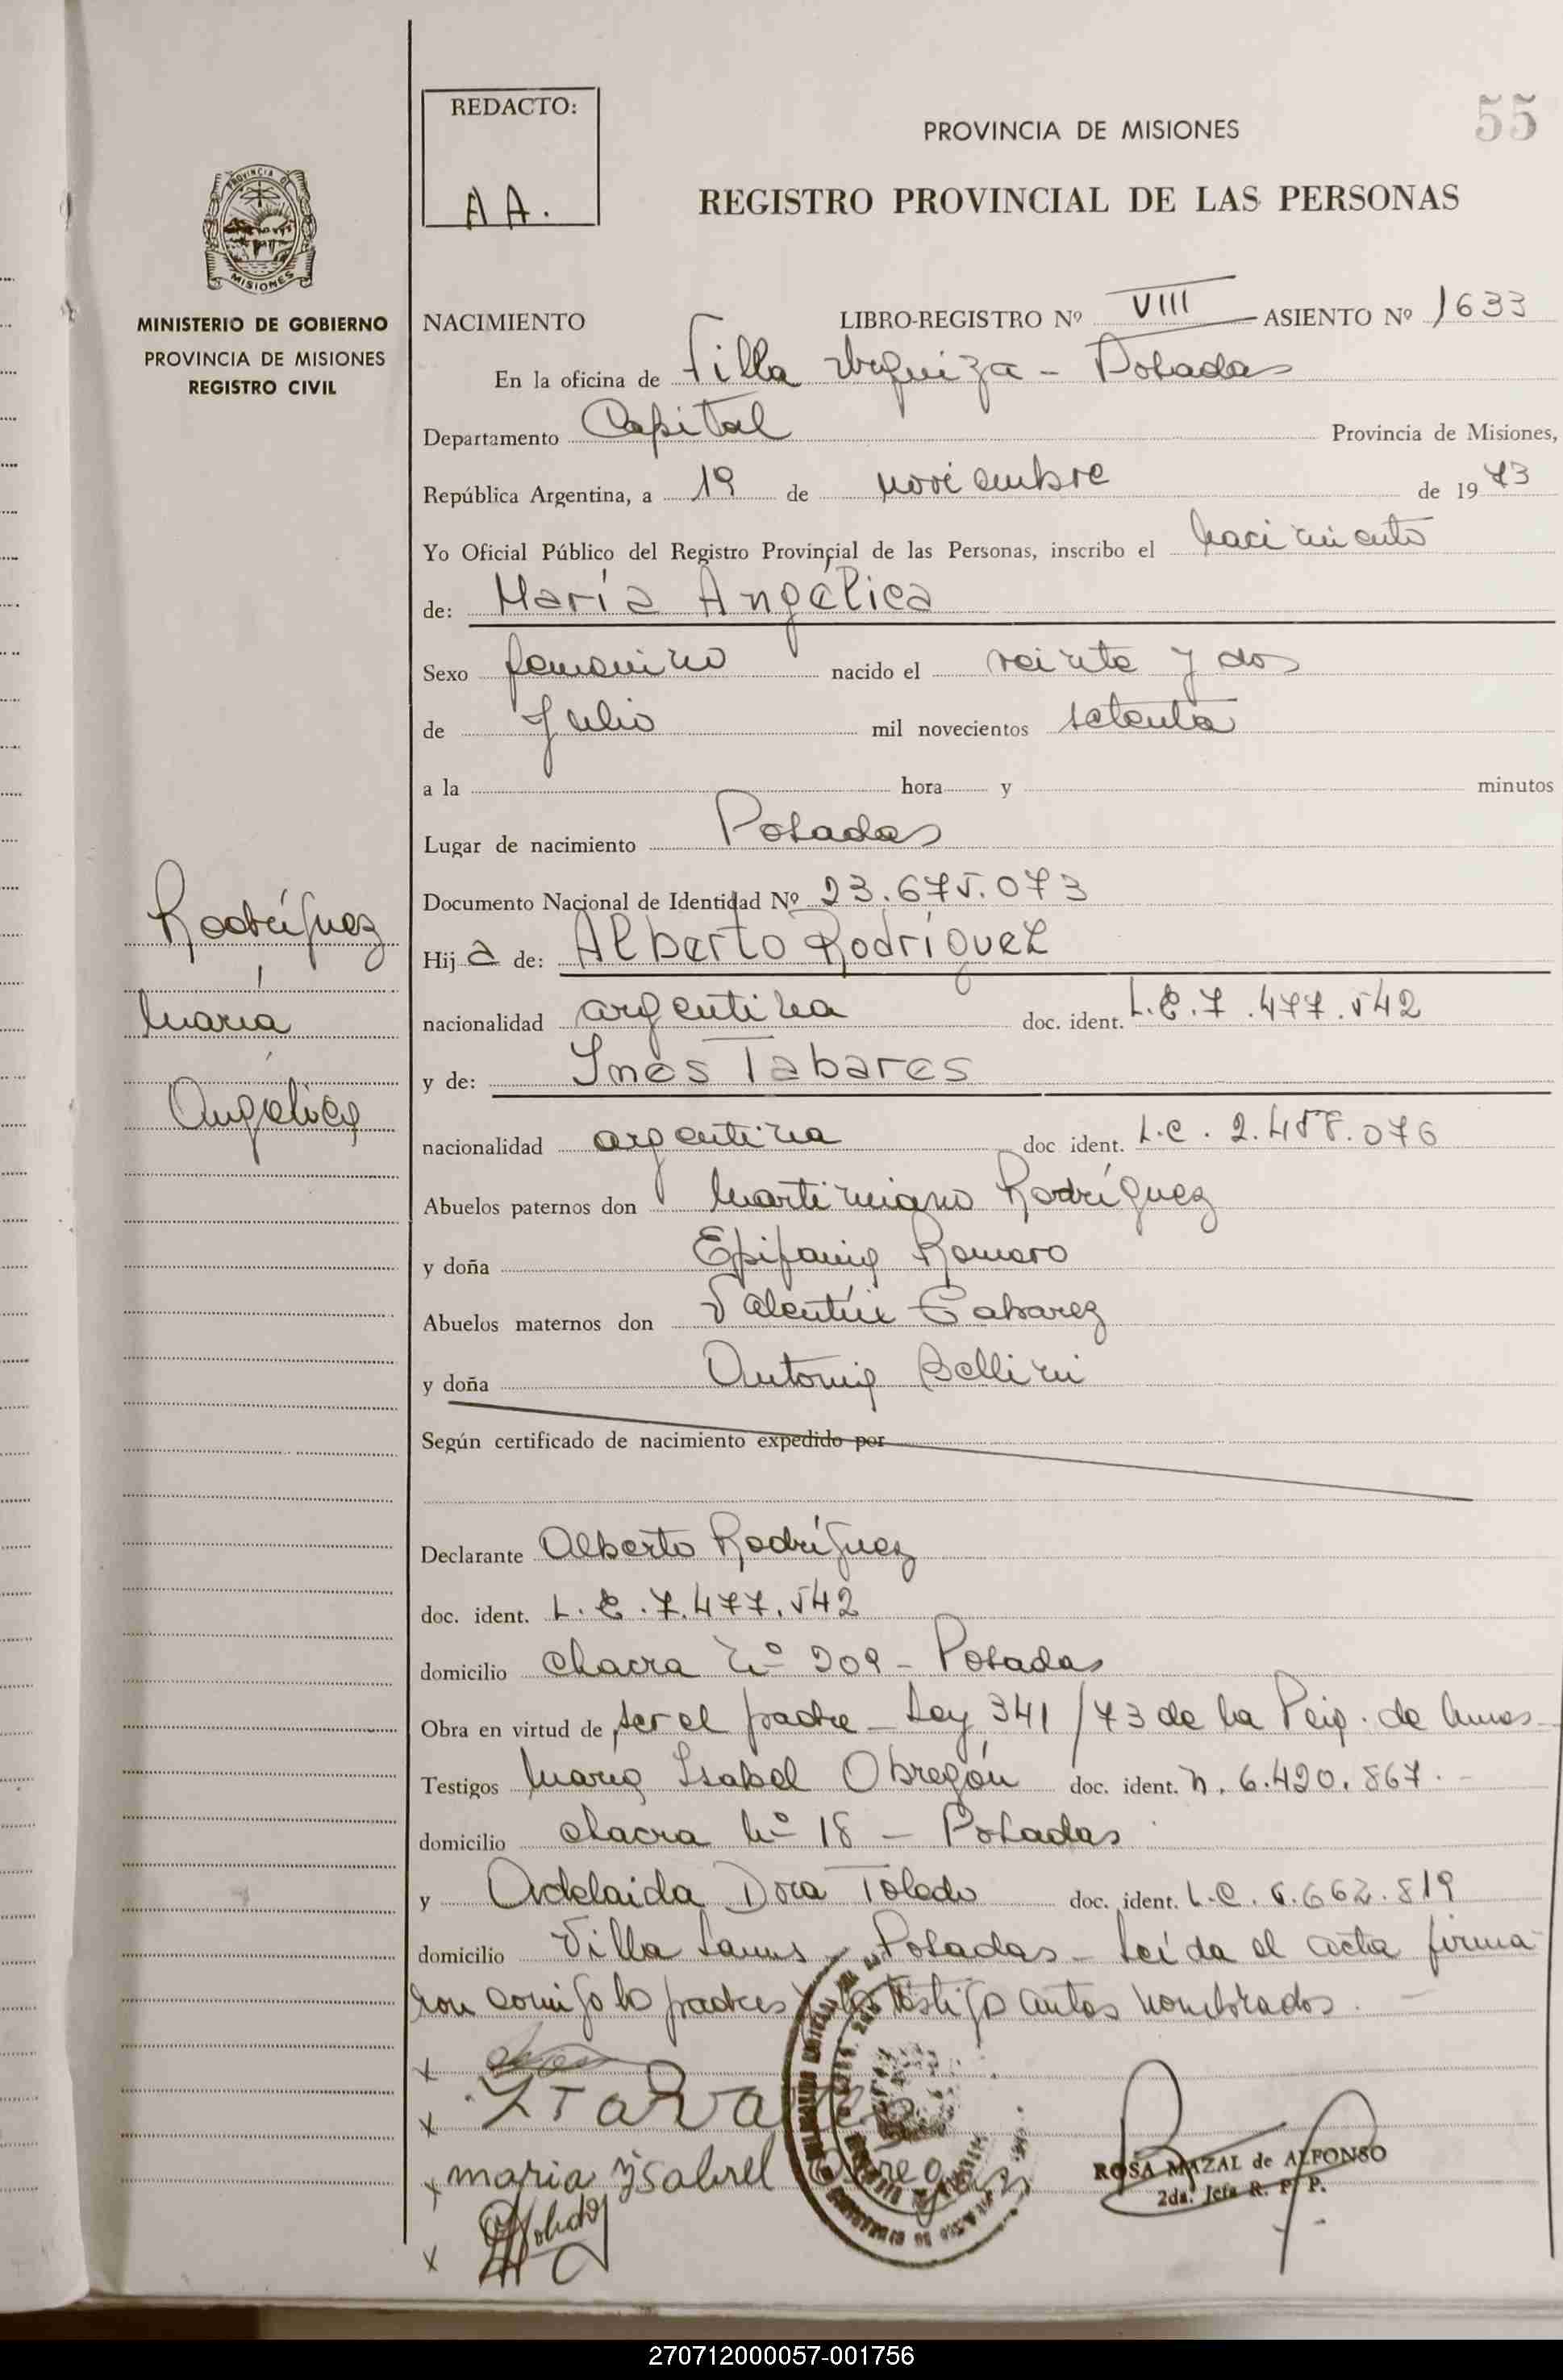 REDACTO:
AA.
PROVINCIA DE MISIONES
55
REGISTRO PROVINCIAL DE LAS PERSONAS
PROVINCIA DE
MISIONES
MINISTERIO DE GOBIERNO
PROVINCIA DE MISIONES
REGISTRO CIVIL
NACIMIENTO LIBRO-REGISTRO Nº VIII ASIENTO Nº 1633
En la oficina de Villa Urquiza - Posadas
Departamento Capital Provincia de Misiones,
República Argentina, a 19 de noviembre de 1973
Yo Oficial Público del Registro Provincial de las Personas, inscribo el nacimiento
de: María Angélica
Sexo femenino nacido el veinte y dos
de Julio mil novecientos setenta
a la hora y minutos
Lugar de nacimiento Posadas
Documento Nacional de Identidad Nº 23.675.073
Hija de: Alberto Rodríguez
nacionalidad argentina doc. ident. L.E. 7.477.542
y de: Ines Tabares
nacionalidad argentina doc ident. L.C. 2.488.076
Abuelos paternos don Martimiano Rodríguez
y doña Epifania Romero
Abuelos maternos don Valentín Tabarez
y doña Antonia Bellini
Según certificado de nacimiento expedido por
Declarante Alberto Rodríguez
doc. ident. L.E. 7.477.542
domicilio Chacra Nº 209 - Posadas
Obra en virtud de ser el padre - Ley 341/73 de la Pcia. de Mnes
Testigos María Isabel Obregón doc. ident. N. 6.420.867.-
domicilio chacra Nº 18 - Posadas
y Adelaida Dora Toledo doc. ident. L.C. 6.662.819
domicilio Villa Lanus - Posadas - Leída el acta firma
ron conmigo lo padres testigo antes nombrados.
x
x I Tabares
x maria ysabel Obregon
x Toledo
Rodríguez
María
Angélica
ROSA MAZAL de ALFONSO
2da. Jefa R. P. P.
270712000057-001756